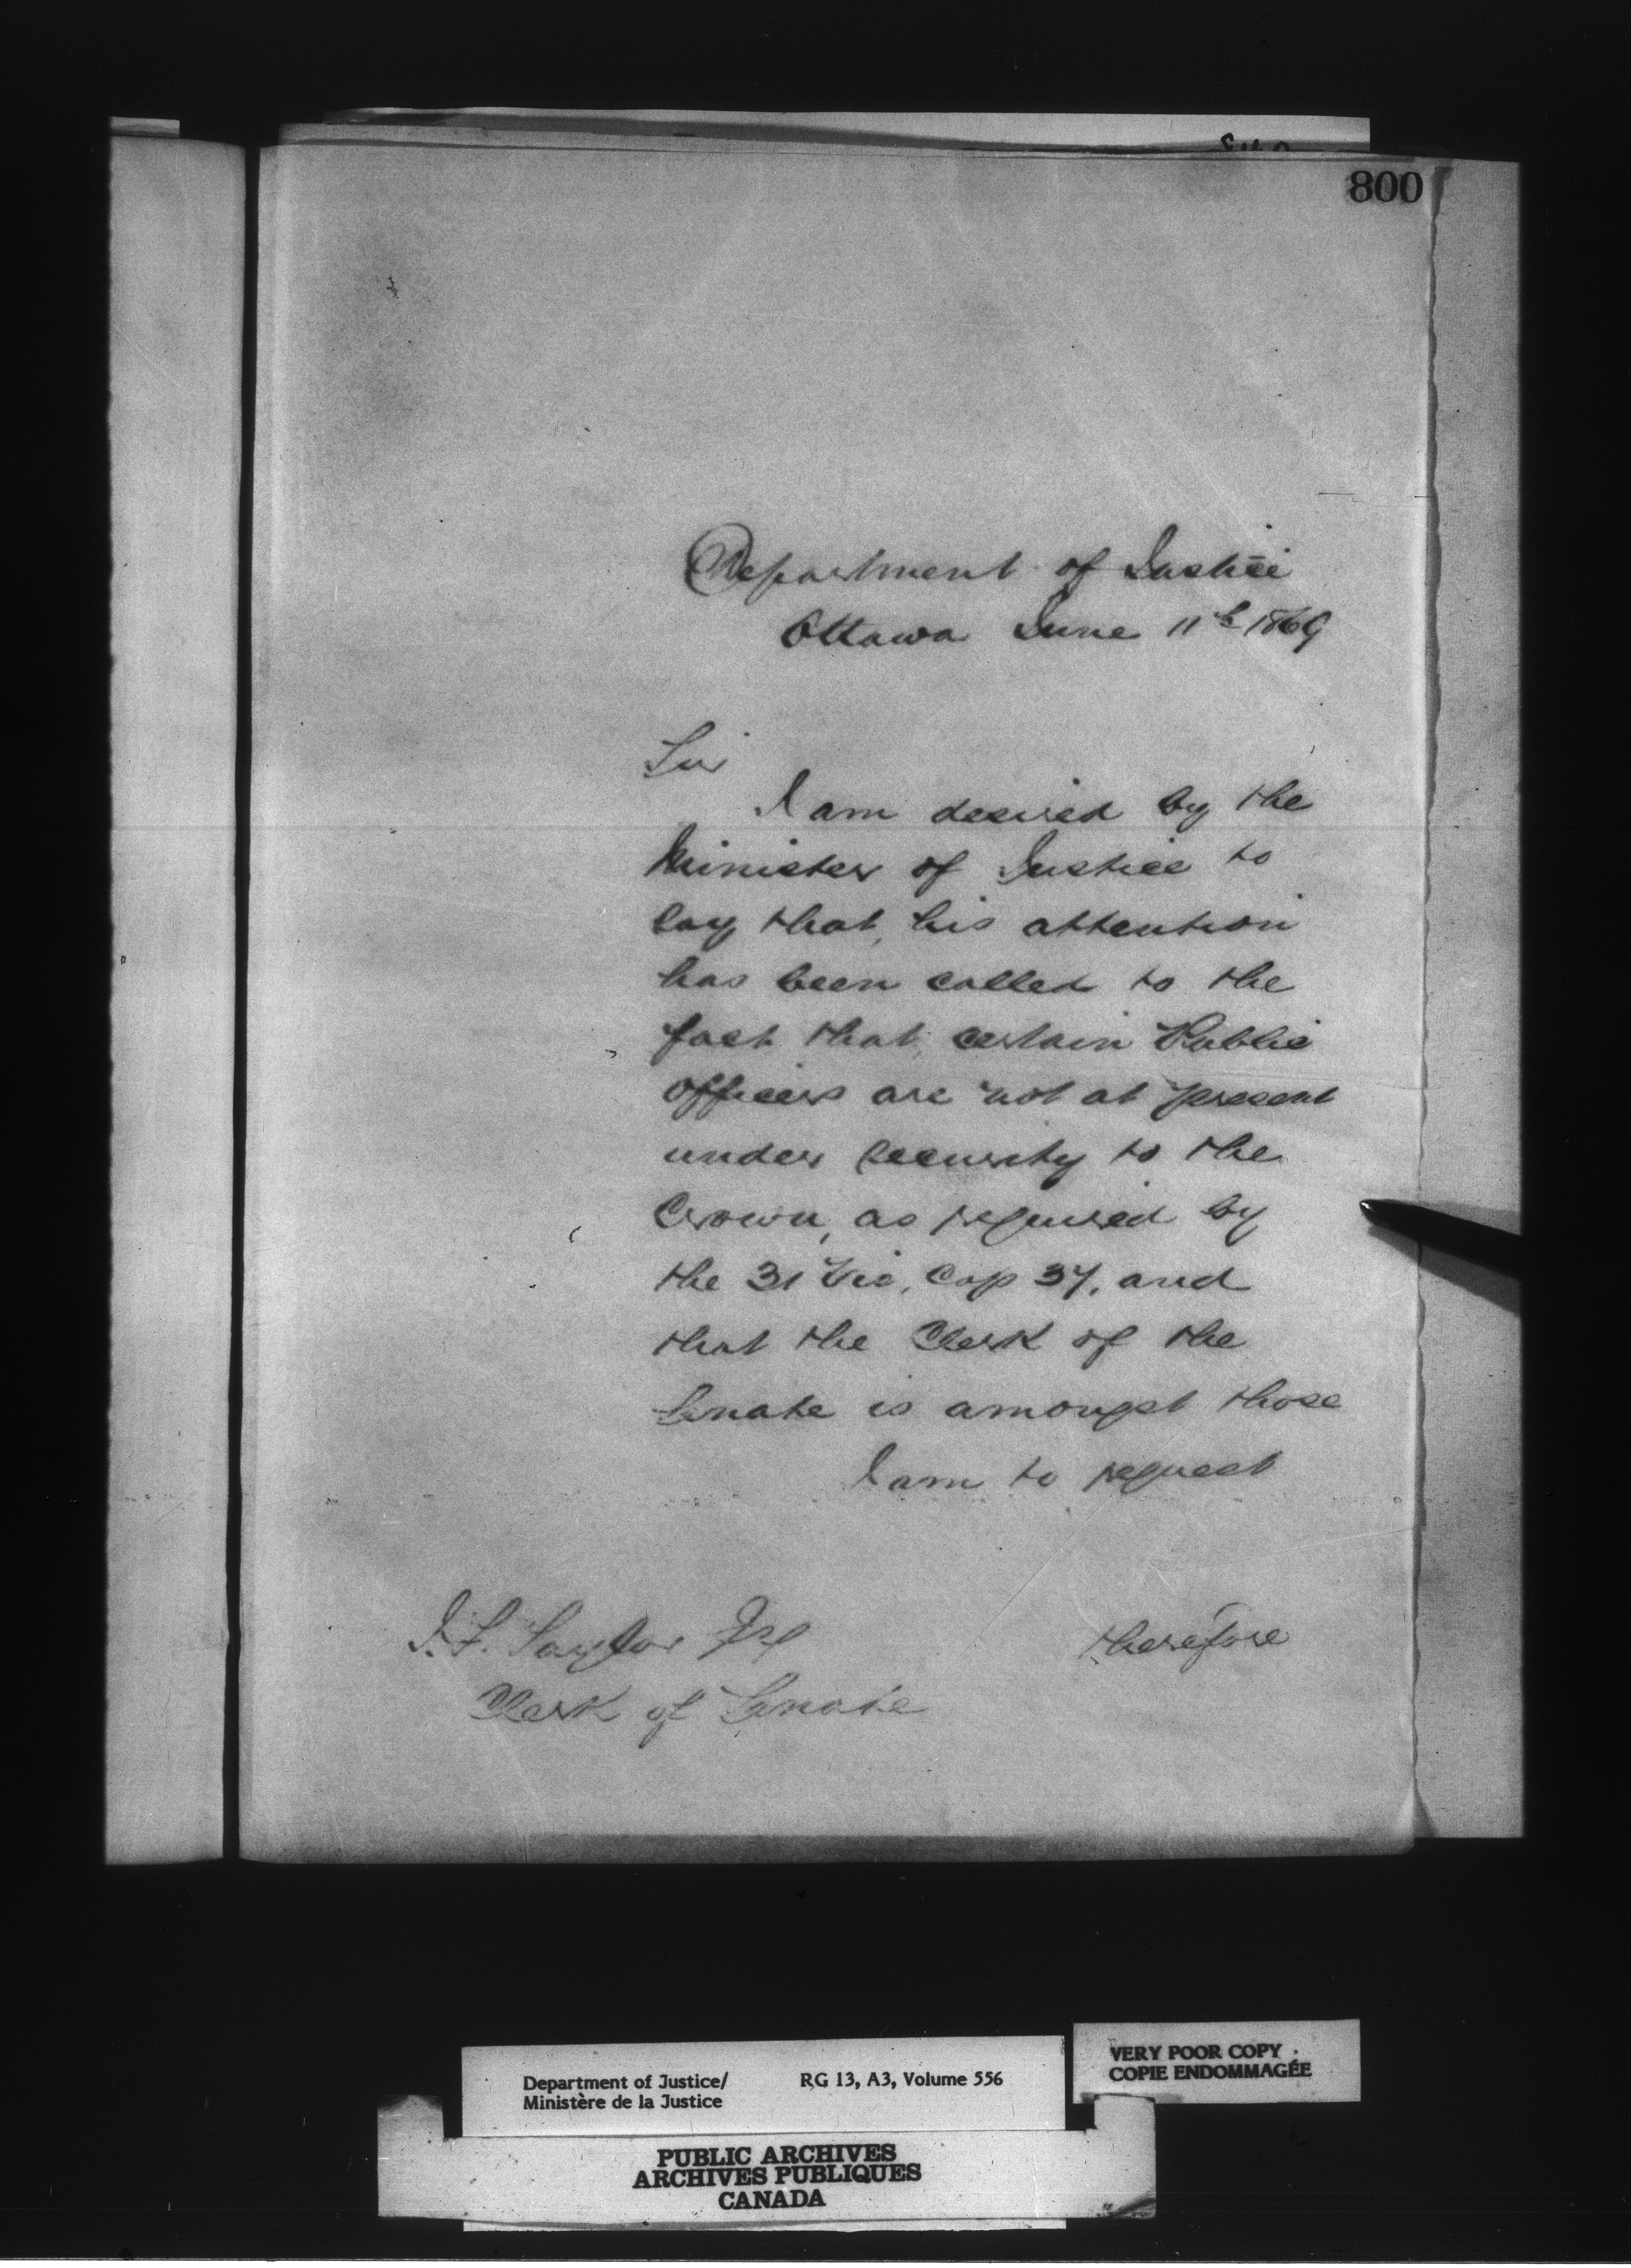 800
Department of Justice
Ottawa June 11th 1869
Sir
I am desired by the
Minister of Justice to
say that, his attention
has been called to the
fact that, certain Public
Officers are not at present
under security to the
Crown, as required by
the 31 Vic, Cap 37, and
that the Clerk of the
Senate is amongst those
I am to request
J. F. Taylor Esq
therefore
Clerk of Senate
Department of Justice/
Ministère de la Justice
RG 13, A3, Volume 556
VERY POOR COPY
COPIE ENDOMMAGÉE
PUBLIC ARCHIVES
ARCHIVES PUBLIQUES
CANADA